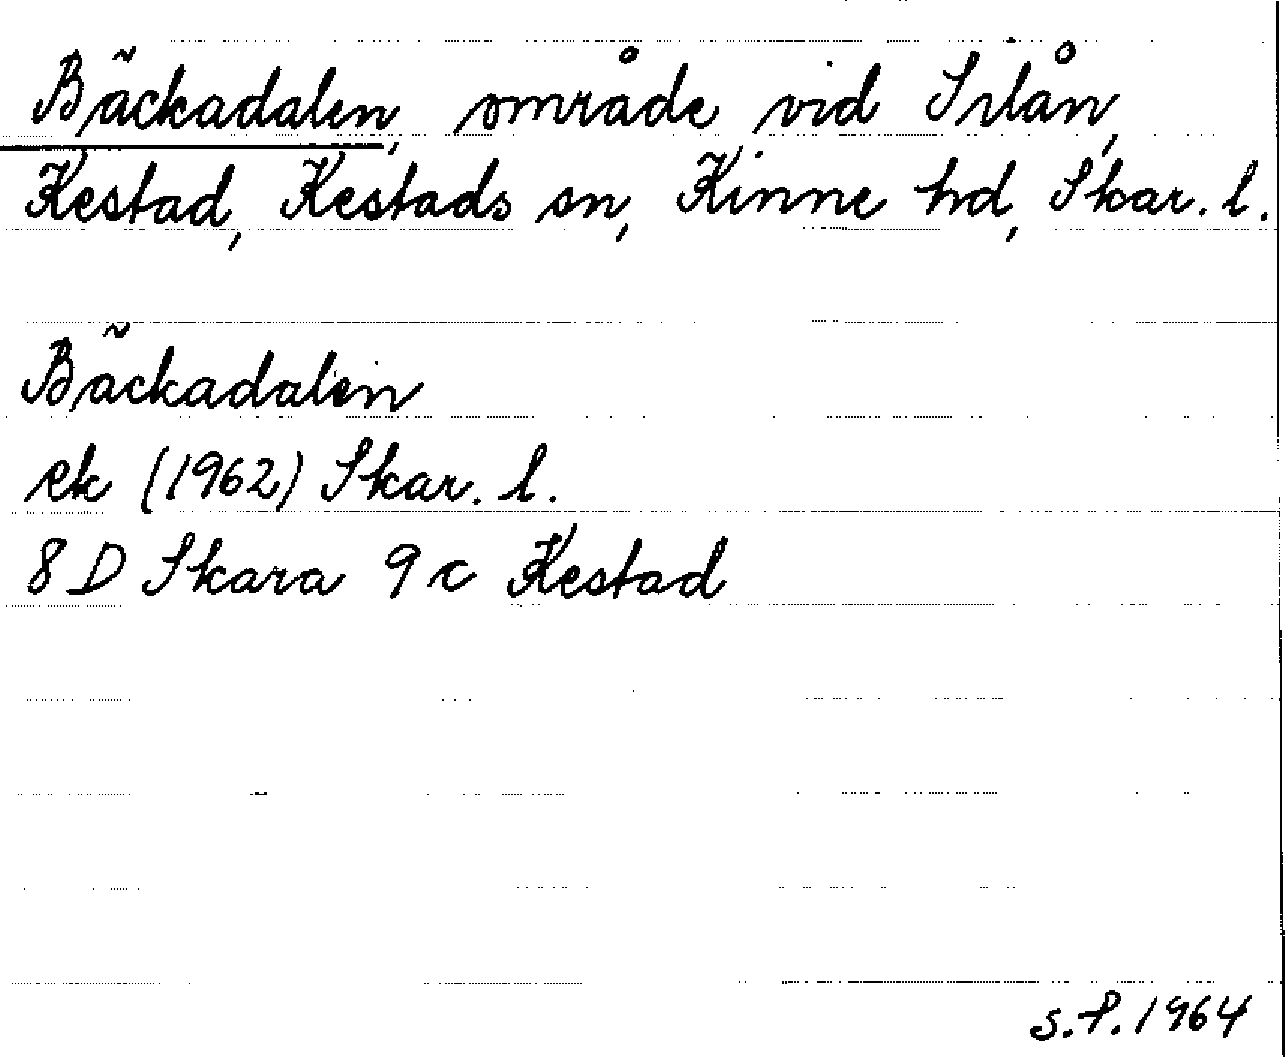 Bäckadalen, område vid Silån,
Kestad, Kestads sn, Kinne hd, Skar. l.
Bäckadalen
ek (1962) Skar. l.
8 D Skara 9 c Kestad
S.P. 1964